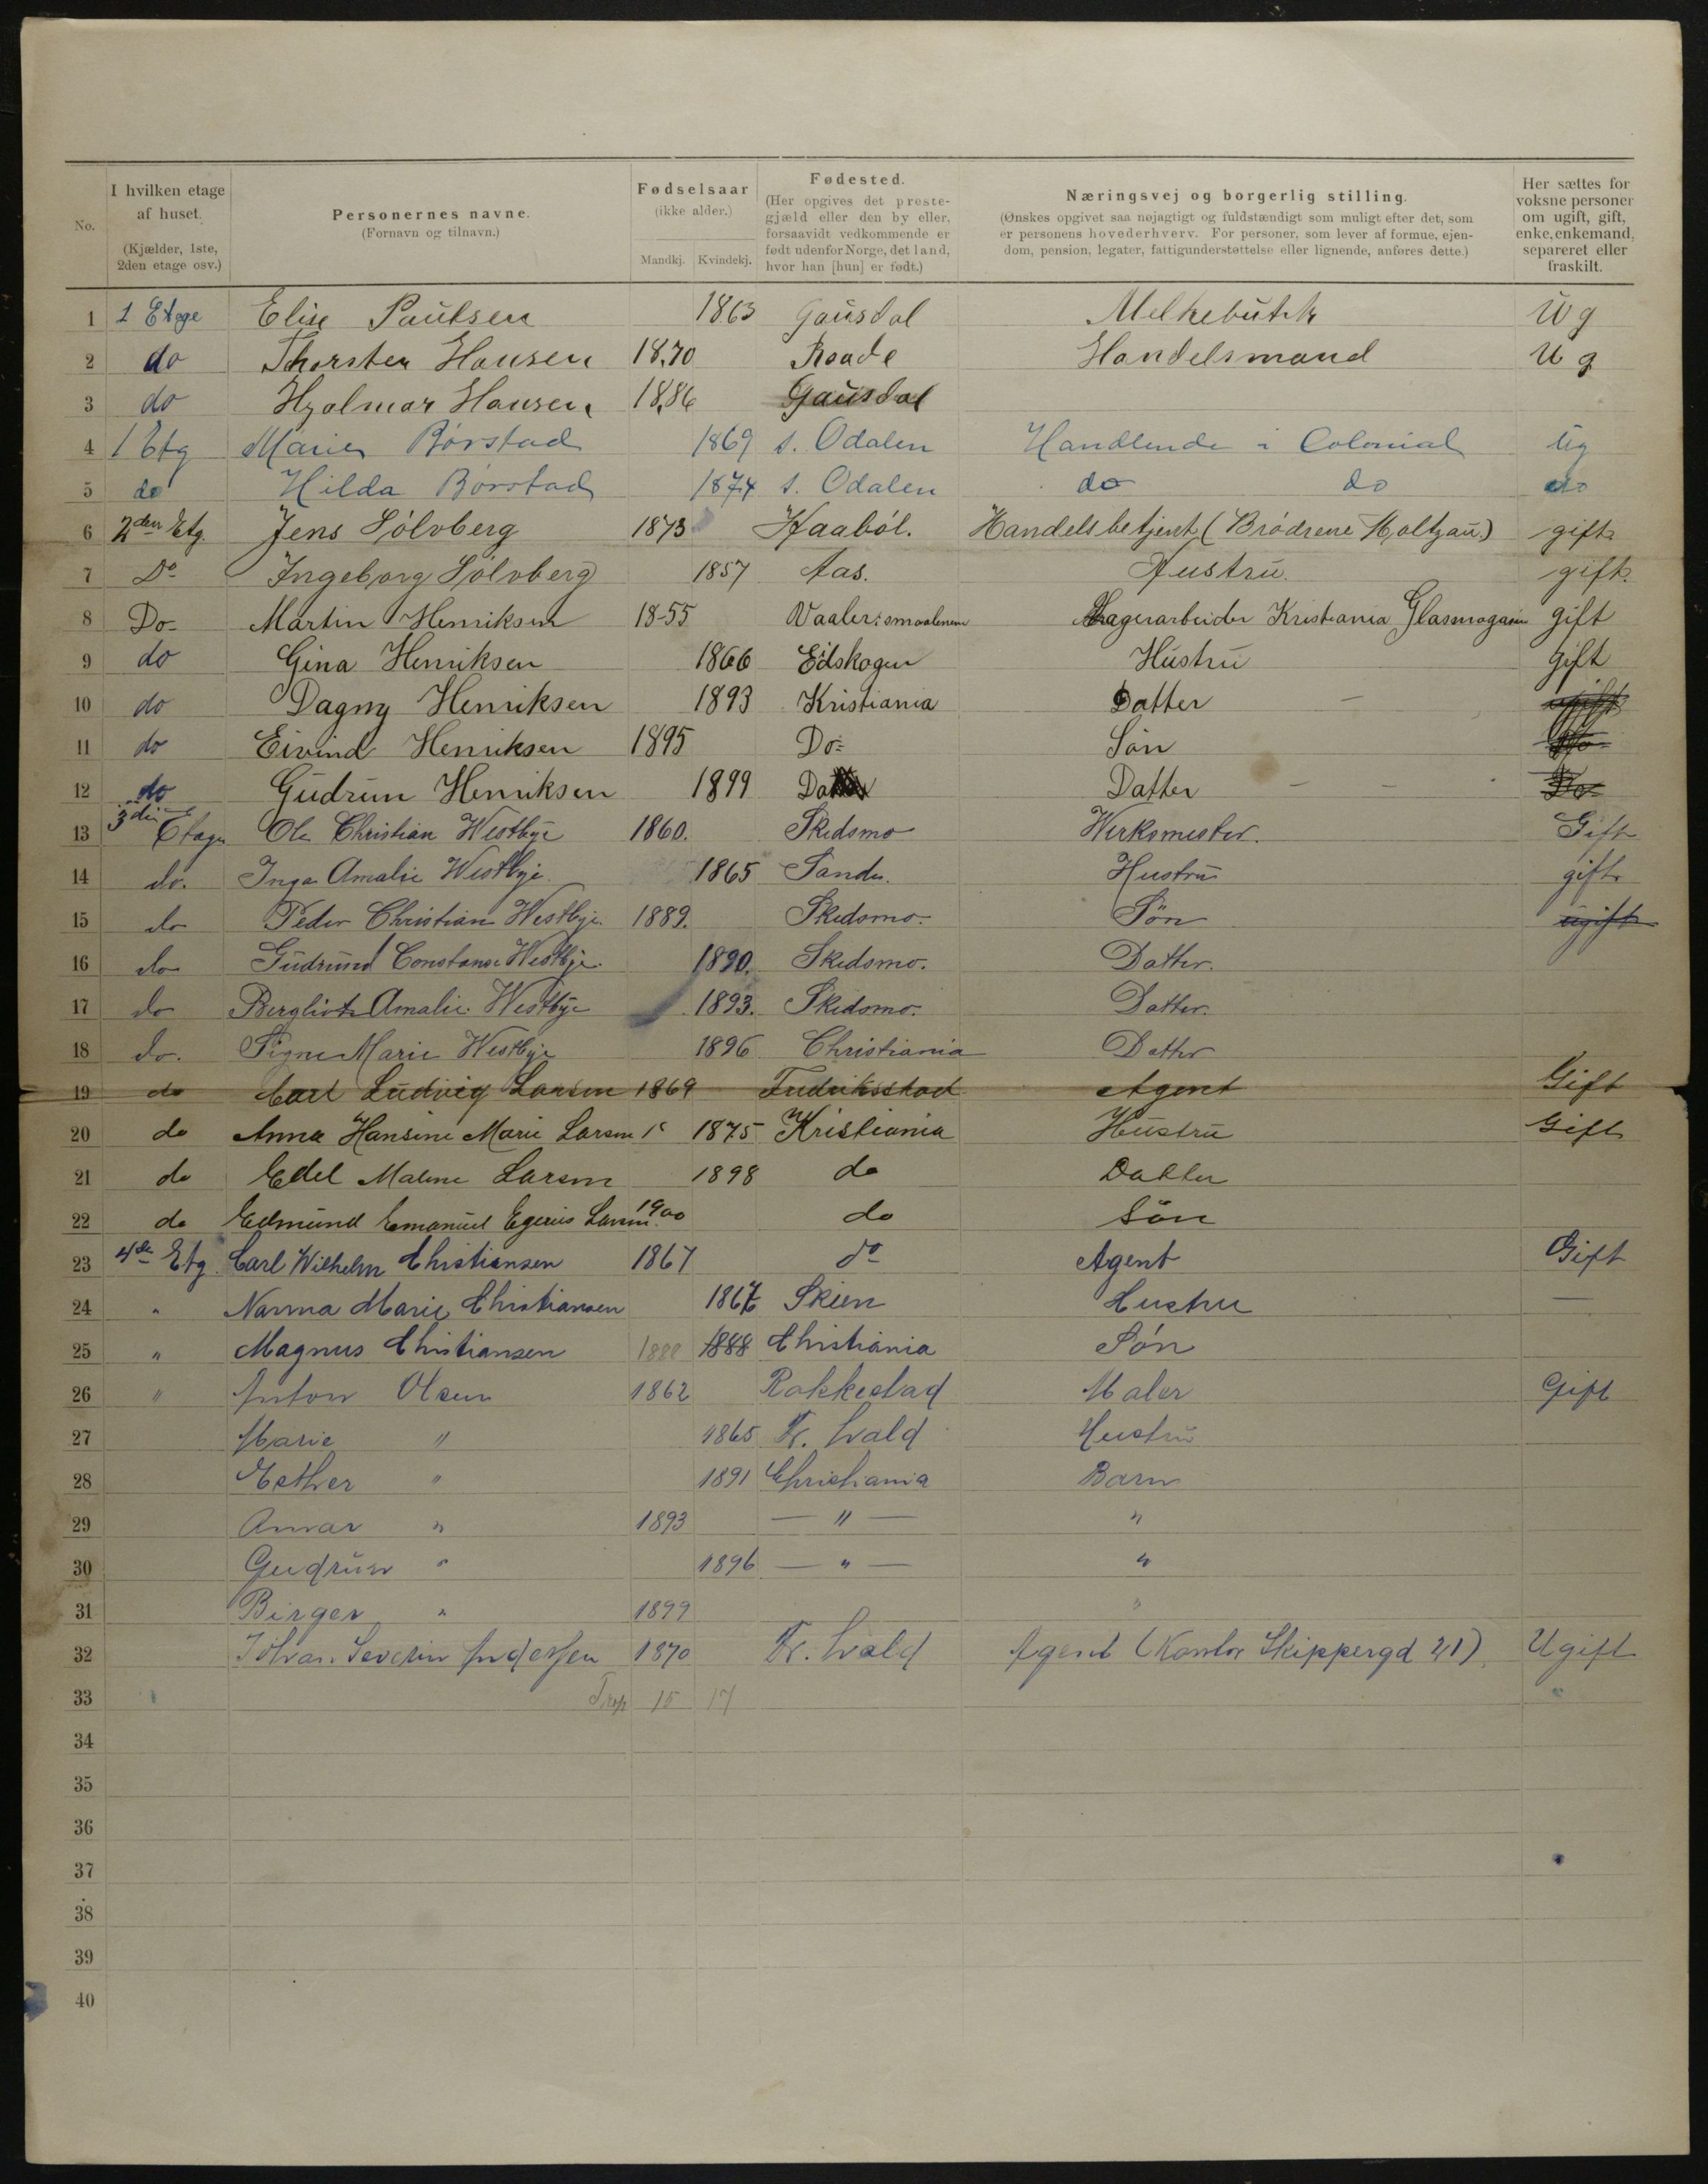 No.
I hvilken etage af huset. (Kjælder, 1ste, 2den etage osv.)
Personernes navne. (Fornavn og tilnavn.)
Fødselsaar (ikke alder.) Mandkj. Kvindekj.
Fødested. (Her opgives det prestegjæld eller den by eller, forsaavidt vedkommende er født udenfor Norge, det land, hvor han [hun] er født.)
Næringsvej og borgerlig stilling. (Ønskes opgivet saa nøjagtigt og fuldstændigt som muligt efter det, som er personens hovederhverv. For personer, som lever af formue, ejendom, pension, legater, fattigunderstøttelse eller lignende, anføres dette.)
Her sættes for voksne personer om ugift, gift, enke, enkemand, separeret eller fraskilt.
1 1 Etage Elise Paulsen 1863 Gausdal Melkebutik Ug
2 do Thorsten Hansen 18.70 Raade Handelsmand Ug
3 do Hjalmar Hansen 18,86 Gausdal
4 1 Etg Marie Børstad 1869 s. Odalen Handlende i Colonial Ug
5 do Hilda Børstad 1874 s. Odalen do do do
6 2den Etg. Jens Sölvberg 1873 Kaaböl. Handelsbetjent (Brödrene Holtzau) gift
7 Do Ingeborg Sölvberg 1857 Aas. Hustru. gift.
8 Do- Martin Henriksen 18-55 Vaaler: smaalenene Lagerarbeider Kristiania Glasmagasin gift
9 do Gina Henriksen 1866 Eidskogen Hustru gift
10 do Dagny Henriksen 1893 Kristiania Datter - ugift
11 do Eivind Henriksen 1895 Do= Sön Do
12 do Gudrun Henriksen 1899 Do Datter - - Do
13 3die Etage Ole Christian Westbye 1860. Skedsmo Verksmester. Gift
14 do. Inga Amalie Westbye. 1865 Sande. Hustru gift
15 do Peder Christian Westbye. 1889. Skedsmo. Sön ugift
16 do Gudrund Constance Westbye. 1890. Skedsmo. Datter.
17 do Bergliot Amalie Westbye 1893. Skedsmo. Datter.
18 do. Signe Marie Westbye 1896 Christiania Datter
19 do Carl Ludvig Larsen 1869 Fredriksstad Agent Gift
20 do Anna Hansine Marie Larsen 1875 Kristiania Hustru Gift
21 do Edel Malene Larsen 1898 do Datter
22 do Edmund Emanuel Egerius Larsen. 1900 do Sön
23 4de Etg. Carl Wilhelm Christiansen 1867 do Agent Gift
24 " Nanna Marie Christiansen 1867 Skien Hustru —
25 " Magnus Christiansen 1888 1888 Christiania Sön
26 " Anton Olsen 1862 Rakkestad Maler Gift
27 Marie " 1865 Fr. hald Hustru
28 Esther " 1891 Christiania Barn
29 Anvar " 1893 — " — "
30 Gudrun " 1896 — " — "
31 Birger " 1899 "
32 Johan Severin Andersen 1870 Fr. hald Agent (Kontor Skippergd 21) Ugift
33 15 17 "
34
35
36
37
38
39
40